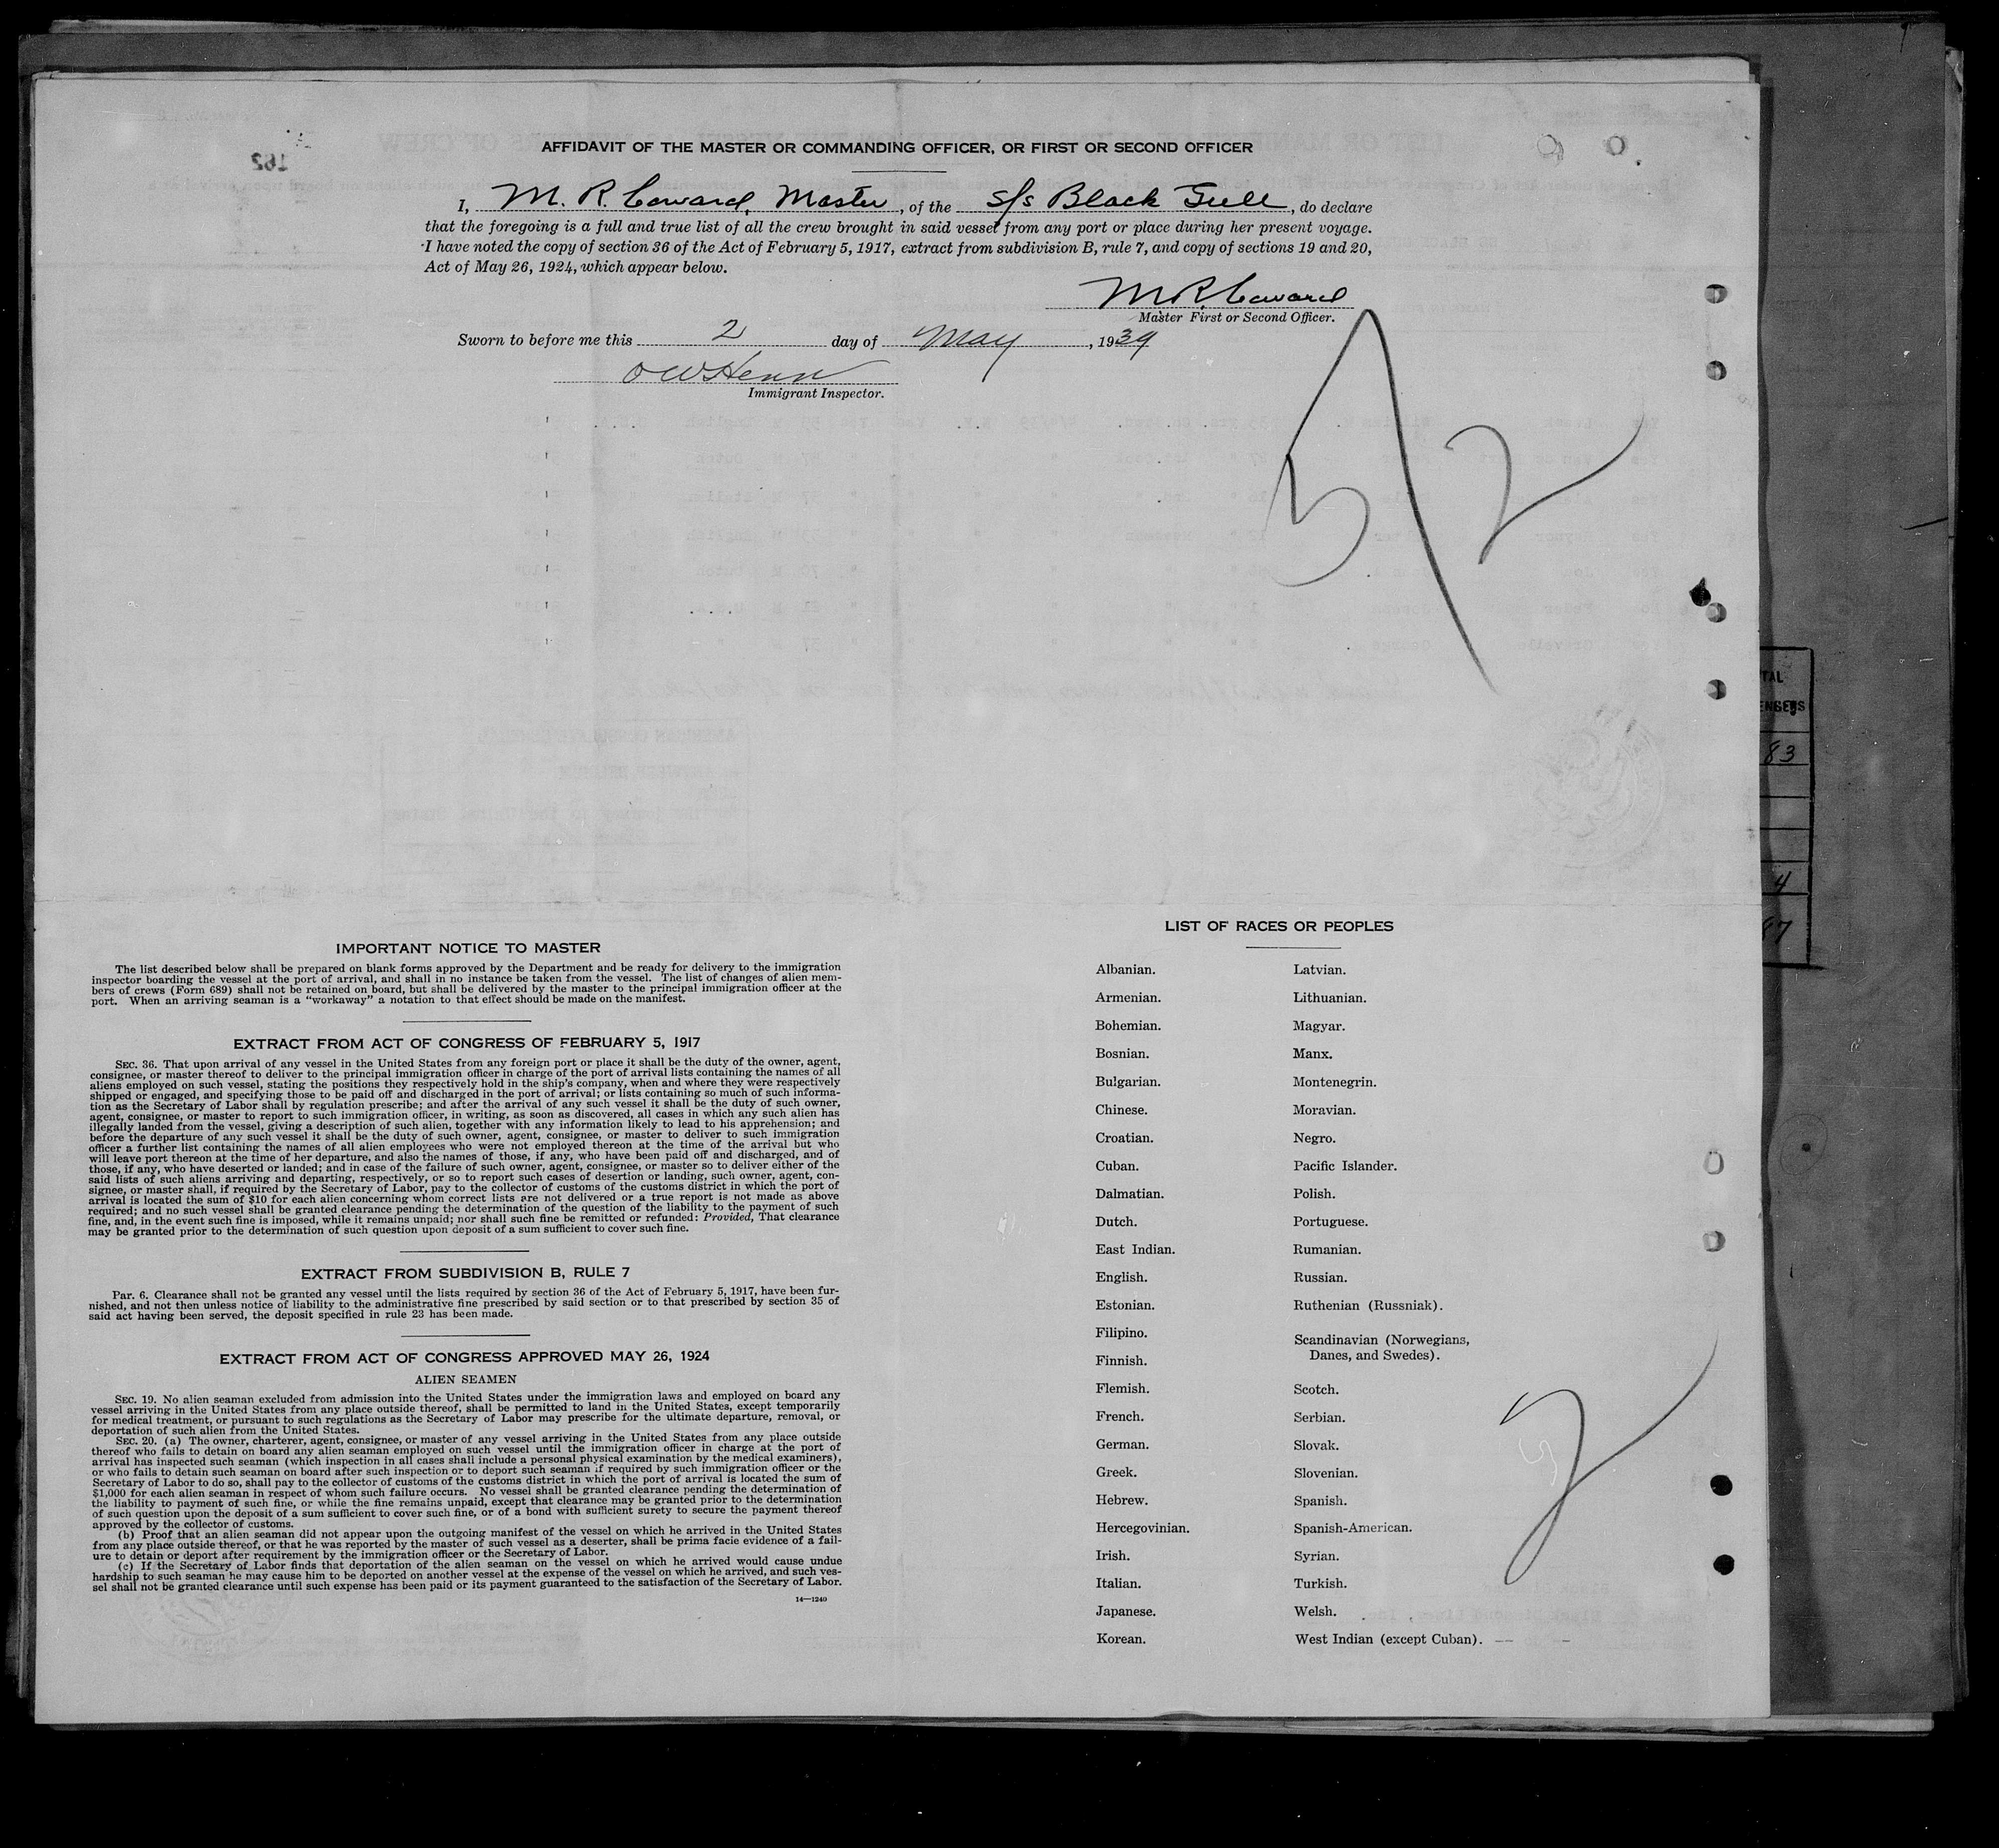 AFFIDAVIT OF THE MASTER OR COMMANDING OFFICER, OR FIRST OR SECOND OFFICER
I, M. R. Coward, Master, of the S/s Black Gull, do declare
that the foregoing is a full and true list of all the crew brought in said vessel from any port or place during her present voyage.
I have noted the copy of section 36 of the Act of February 5, 1917, extract from subdivision B, rule 7, and copy of sections 19 and 20,
Act of May 26, 1924, which appear below.
M R Coward
Master First or Second Officer.
Sworn to before me this 2 day of May, 1939
O W Henn
Immigrant Inspector.
5/2
TAL
83
4
IMPORTANT NOTICE TO MASTER
The list described below shall be prepared on blank forms approved by the Department and be ready for delivery to the immigration
inspector boarding the vessel at the port of arrival, and shall in no instance be taken from the vessel. The list of changes of alien mem-
bers of crews (Form 689) shall not be retained on board, but shall be delivered by the master to the principal immigration officer at the
port. When an arriving seaman is a "workaway" a notation to that effect should be made on the manifest.
EXTRACT FROM ACT OF CONGRESS OF FEBRUARY 5, 1917
SEC. 36. That upon arrival of any vessel in the United States from any foreign port or place it shall be the duty of the owner, agent,
consignee, or master thereof to deliver to the principal immigration officer in charge of the port of arrival lists containing the names of all
aliens employed on such vessel, stating the positions they respectively hold in the ship's company, when and where they were respectively
shipped or engaged, and specifying those to be paid off and discharged in the port of arrival; or lists containing so much of such informa-
tion as the Secretary of Labor shall by regulation prescribe; and after the arrival of any such vessel it shall be the duty of such owner,
agent, consignee, or master to report to such immigration officer, in writing, as soon as discovered, all cases in which any such alien has
illegally landed from the vessel, giving a description of such alien, together with any information likely to lead to his apprehension; and
before the departure of any such vessel it shall be the duty of such owner, agent, consignee, or master to deliver to such immigration
officer a further list containing the names of all alien employees who were not employed thereon at the time of the arrival but who
will leave port thereon at the time of her departure, and also the names of those, if any, who have been paid off and discharged, and of
those, if any, who have deserted or landed; and in case of the failure of such owner, agent, consignee, or master so to deliver either of the
said lists of such aliens arriving and departing, respectively, or so to report such cases of desertion or landing, such owner, agent, con-
signee, or master shall, if required by the Secretary of Labor, pay to the collector of customs of the customs district in which the port of
arrival is located the sum of $10 for each alien concerning whom correct lists are not delivered or a true report is not made as above
required; and no such vessel shall be granted clearance pending the determination of the question of the liability to the payment of such
fine, and, in the event such fine is imposed, while it remains unpaid; nor shall such fine be remitted or refunded: Provided, That clearance
may be granted prior to the determination of such question upon deposit of a sum sufficient to cover such fine.
EXTRACT FROM SUBDIVISION B, RULE 7
Par. 6. Clearance shall not be granted any vessel until the lists required by section 36 of the Act of February 5, 1917, have been fur-
nished, and not then unless notice of liability to the administrative fine prescribed by said section or to that prescribed by section 35 of
said act having been served, the deposit specified in rule 23 has been made.
EXTRACT FROM ACT OF CONGRESS APPROVED MAY 26, 1924
ALIEN SEAMEN
SEC. 19. No alien seaman excluded from admission into the United States under the immigration laws and employed on board any
vessel arriving in the United States from any place outside thereof, shall be permitted to land in the United States, except temporarily
for medical treatment, or pursuant to such regulations as the Secretary of Labor may prescribe for the ultimate departure, removal, or
deportation of such alien from the United States.
SEC. 20. (a) The owner, charterer, agent, consignee, or master of any vessel arriving in the United States from any place outside
thereof who fails to detain on board any alien seaman employed on such vessel until the immigration officer in charge at the port of
arrival has inspected such seaman (which inspection in all cases shall include a personal physical examination by the medical examiners),
or who fails to detain such seaman on board after such inspection or to deport such seaman if required by such immigration officer or the
Secretary of Labor to do so, shall pay to the collector of customs of the customs district in which the port of arrival is located the sum of
$1,000 for each alien seaman in respect of whom such failure occurs. No vessel shall be granted clearance pending the determination of
the liability to payment of such fine, or while the fine remains unpaid, except that clearance may be granted prior to the determination
of such question upon the deposit of a sum sufficient to cover such fine, or of a bond with sufficient surety to secure the payment thereof
approved by the collector of customs.
(b) Proof that an alien seaman did not appear upon the outgoing manifest of the vessel on which he arrived in the United States
from any place outside thereof, or that he was reported by the master of such vessel as a deserter, shall be prima facie evidence of a fail-
ure to detain or deport after requirement by the immigration officer or the Secretary of Labor.
(c) If the Secretary of Labor finds that deportation of the alien seaman on the vessel on which he arrived would cause undue
hardship to such seaman he may cause him to be deported on another vessel at the expense of the vessel on which he arrived, and such ves-
sel shall not be granted clearance until such expense has been paid or its payment guaranteed to the satisfaction of the Secretary of Labor.
14—1240
LIST OF RACES OR PEOPLES
Albanian.
Armenian.
Bohemian.
Bosnian.
Bulgarian.
Chinese.
Croatian.
Cuban.
Dalmatian.
Dutch.
East Indian.
English.
Estonian.
Filipino.
Finnish.
Flemish.
French.
German.
Greek.
Hebrew.
Hercegovinian.
Irish.
Italian.
Japanese.
Korean.
Latvian.
Lithuanian.
Magyar.
Manx.
Montenegrin.
Moravian.
Negro.
Pacific Islander.
Polish.
Portuguese.
Rumanian.
Russian.
Ruthenian (Russniak).
Scandinavian (Norwegians,
Danes, and Swedes).
Scotch.
Serbian.
Slovak.
Slovenian.
Spanish.
Spanish-American.
Syrian.
Turkish.
Welsh.
West Indian (except Cuban).
2